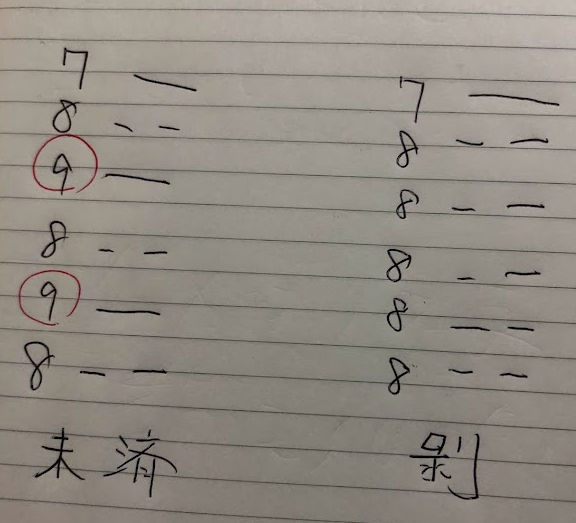 7 —
8 - -
9 —
8 - -
9 —
8 - -
未濟
7 —
8 - -
8 - -
8 - -
8 - -
8 - -
剝